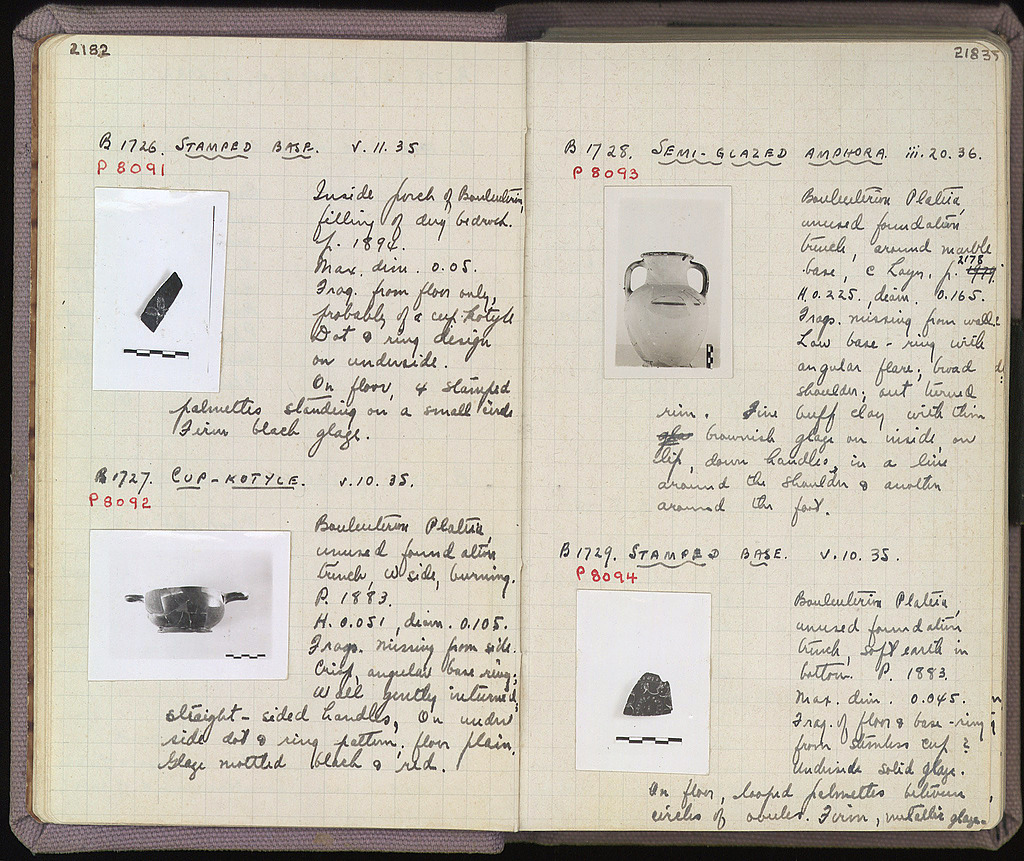 2182
B 1726. STAMPED BASE. V.11.35
P 8091
Inside porch of Bouleuterion,
filling of dug bedrock.
p. 1894.
Max. dim. 0.05.
Frag. from floor only,
probably of a cup-kotyle
Dot & ring design
on underside.
On floor, 4 stamped
palmettes standing on a small circle
Firm black glaze.
B 1727. CUP-KOTYLE. V.10.35.
P 8092
Bouleuterion Plateia,
unused foundation
trench, W side, burning.
P. 1883.
H. 0.051, diam. 0.105.
Frags. missing from side.
Crisp, angular base ring;
Wall gently inturned;
straight-sided handles, On under
side dot & ring pattern, floor plain.
Glaze mottled black & red.
21835
B 1728. SEMI-GLAZED AMPHORA. iii.20.36.
P 8093
Bouleuterion Plateia,
unused foundation
trench, around marble
base, c Layer. p. 2178
H. 0.225. diam. 0.165.
Frags. missing from wall.
Low base-ring with
angular flare; broad
shoulder; out turned
rim. Fine buff clay with thin
brownish glaze on inside, on
lip, down handles, in a line
around the shoulder & another
around the foot.
B 1729. STAMPED BASE. V.10.35.
P 8094
Bouleuterion Plateia,
unused foundation
trench, soft earth in
bottom. P. 1883.
Max. dim. 0.045.
Frag. of floor & base-ring
from stemless cup?
Underside solid glaze.
On floor, looped palmettes between
circles of ovules. Firm, metallic glaze.